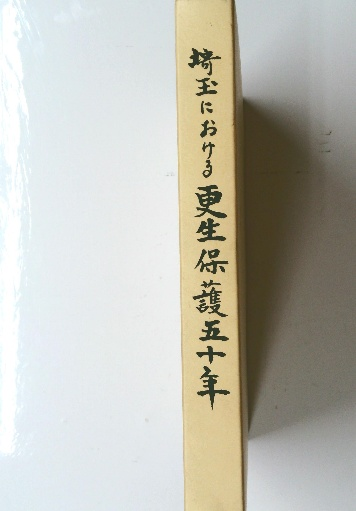 埼玉における更生保護五十年